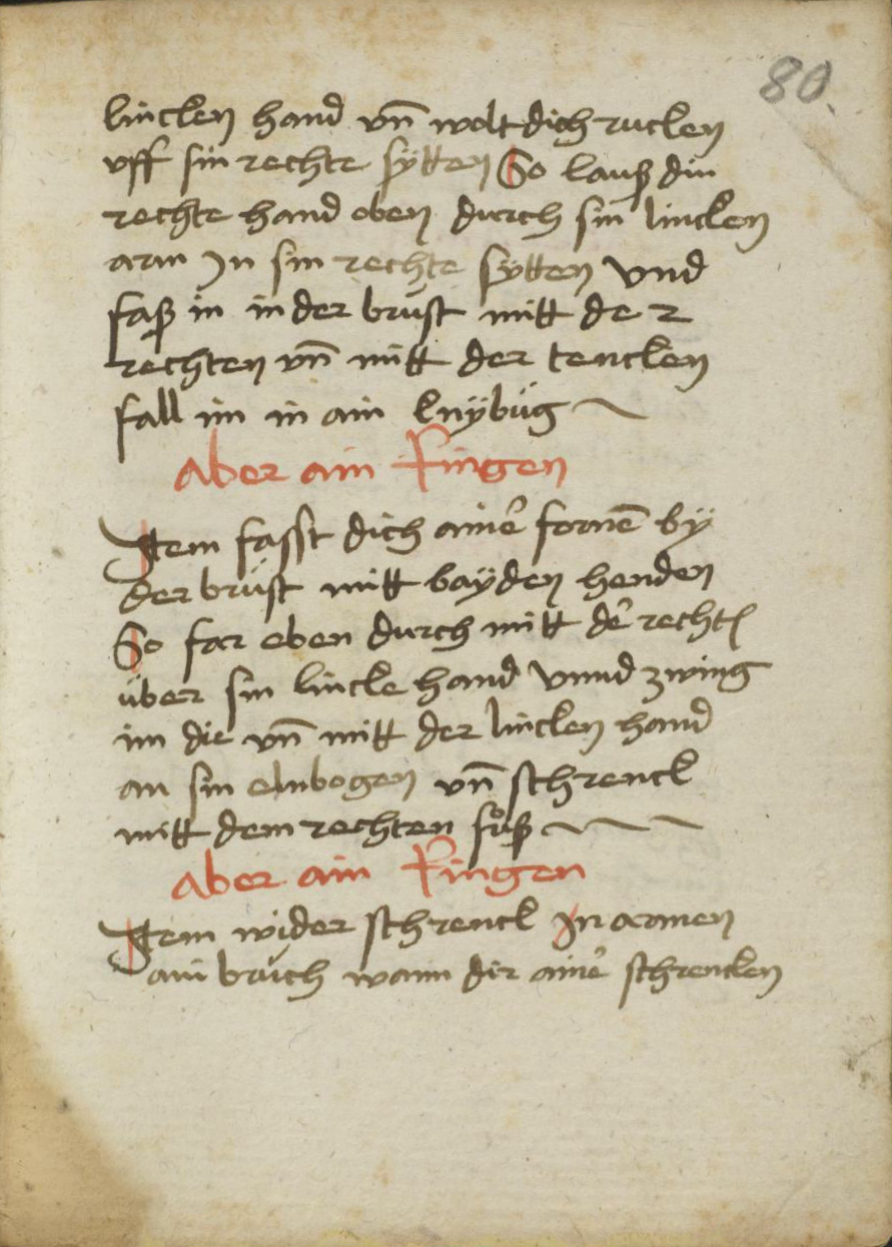 80.
lincken hand vn̄ wolt dich rucken
vff sin rechte sÿtten So lauß din
rechte hand oben durch sin lincken
arm Jn sin rechte sÿtten vnd
faß in in der brust mitt der
rechten vn̄ mitt der tencken
fall im in ain knÿbüg
Aber ain Ringen
Jtem fasst dich aine᷑ fornē bÿ
der brust mitt baÿden henden
So far eben durch mitt de᷑ rechtē
über sin lincke hand vnnd zwing
im die vn̄ mitt der lincken hand
an sin elnbogen vn̄ schrenck
mitt dem rechten fůß
Aber ain Ringen
Jtem wider schrenck Jn armen
ain bruch wann dir aine᷑ schrencken